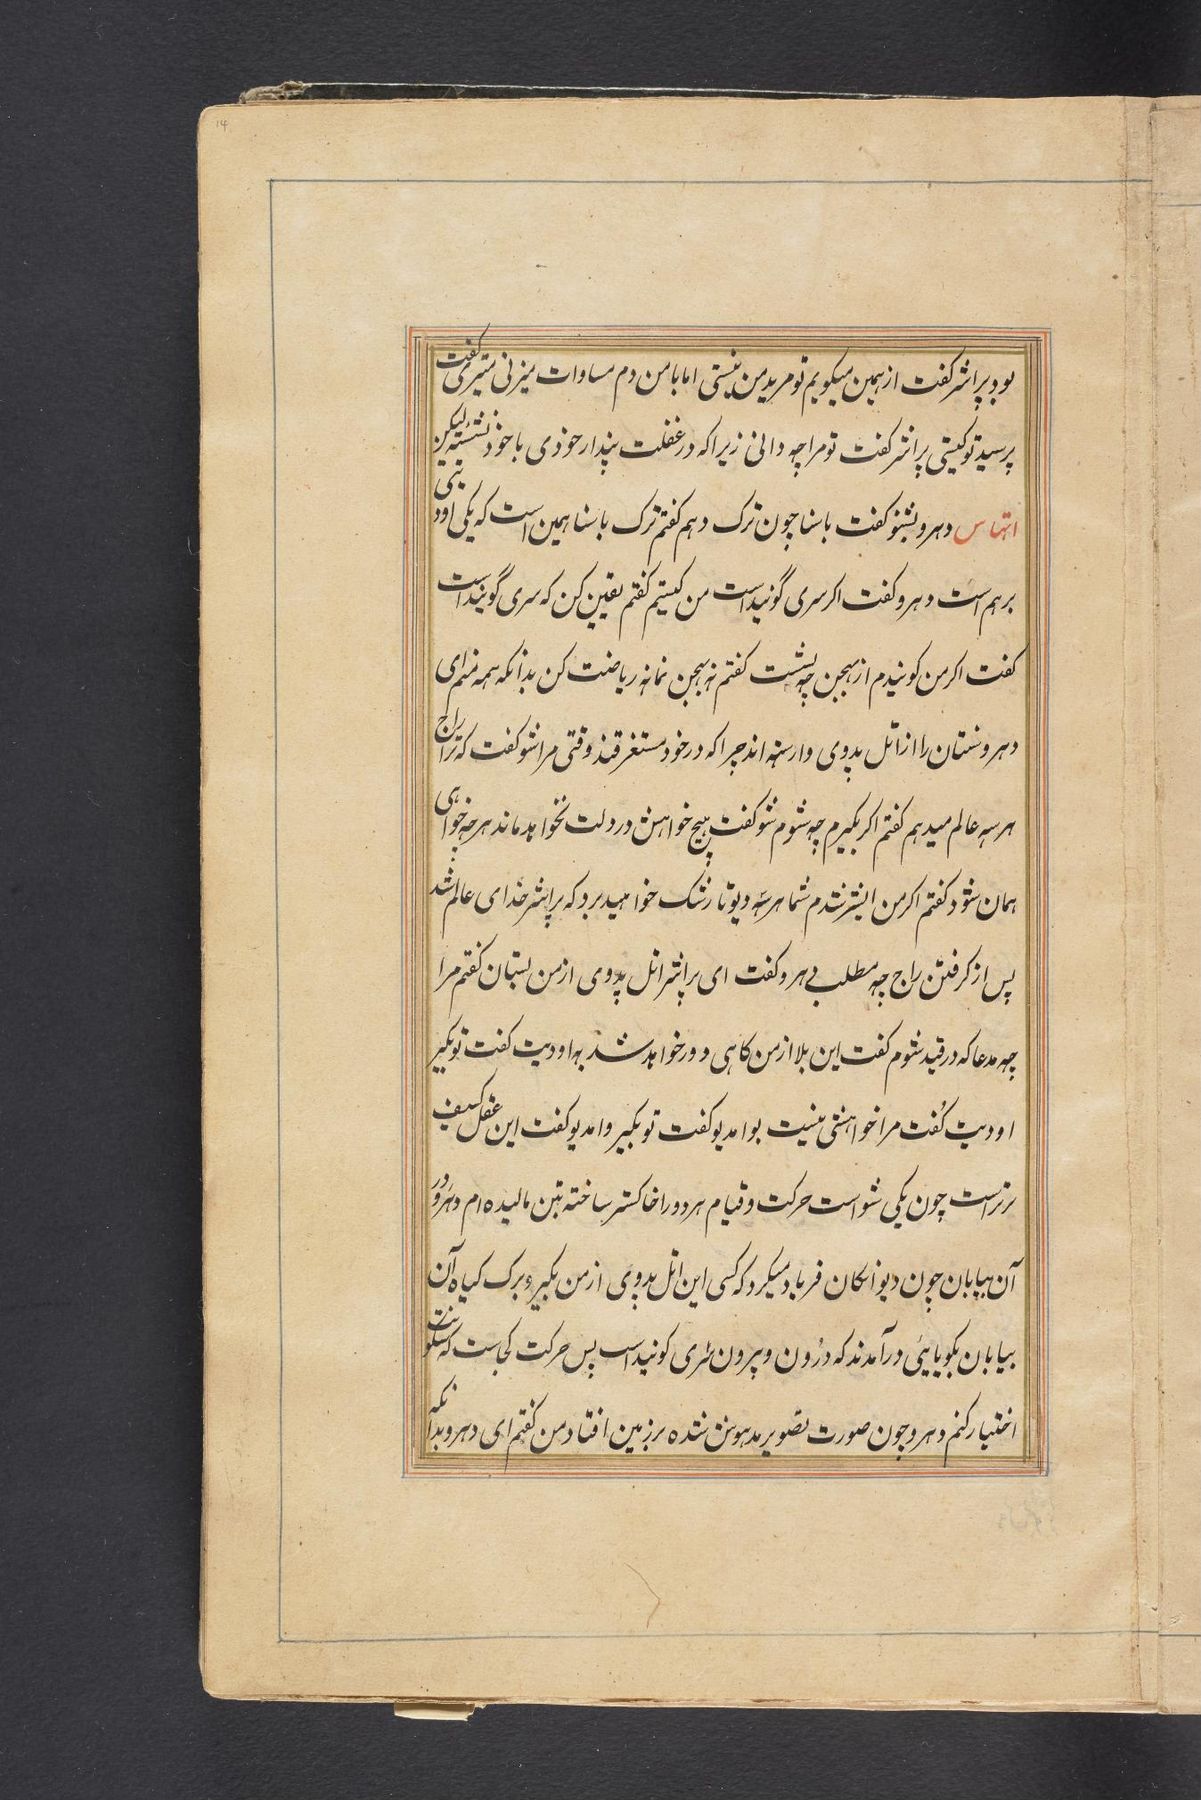 ۱۴
بود پراشر کفت از همین میکویم تو مرید من نیستی اما با من دم مساوات میزنی متیری کفت
پرسید تو کیستی پراشر کفت تو مرا چه دانی زیرا که در غفلت پندار خودی با خود نشسته لیکن
اتهاس دهرو بشنو کفت باسنا چون ترک دهم کفتم ترک باسنا همین است که یکی اود
برهم است دهرو کفت اکر سری گونبداست من کیستم کفتم یقین کن که سری گوبنداست
کفت اکر من کوبندم از بهجن چه بشت کفتم نه بهجن نمانه ریاضت کن بدانکه همه منم ای
دهرو سنتان را از اتل پدوی وارسته اند چرا که در خود مستغرقند وقتی مرا شو کفت که ترا راج
هر سه عالم میدهم کفتم اکر بکیرم چه شوم شو کفت هیچ خواهش در دلت نخواهد ماند هرچه خواهی
همان شود کفتم اکر من ایشر شدم شما هر سه دیوتا رشک خواهید برد که پراشر خدای عالم شد
پس از کرفتن راج چه مطلب دهرو کفت ای پراشر اتل پدوی از من بستان کفتم مرا
چه مدعا که در قید شوم کفت این بلا از من کاهی دور خواهد شد به اودیت کفت تو بکیر
اودیت کفت مرا خواهشی نیست بوامدیو کفت تو بکیر وامدیو کفت این عقل کسیف
تر است چون یکی شو است حرکت و قیام هر دو را خاکستر ساخته بتن مالیده ام دهرو در
آن بیابان چون دیوانکان فریاد میکرد که کسی این اتل پدوی از من بکیرد برک کیاه آن
بیابان بکویایی درآمدند که درون و بیرون سری کوبنداست پس حرکت کجاست که سکونت
اختیار کنم دهرو چون صورت تصویر مدهوش شده بر زمین افتاد من کفتم ای دهرو بدانکه